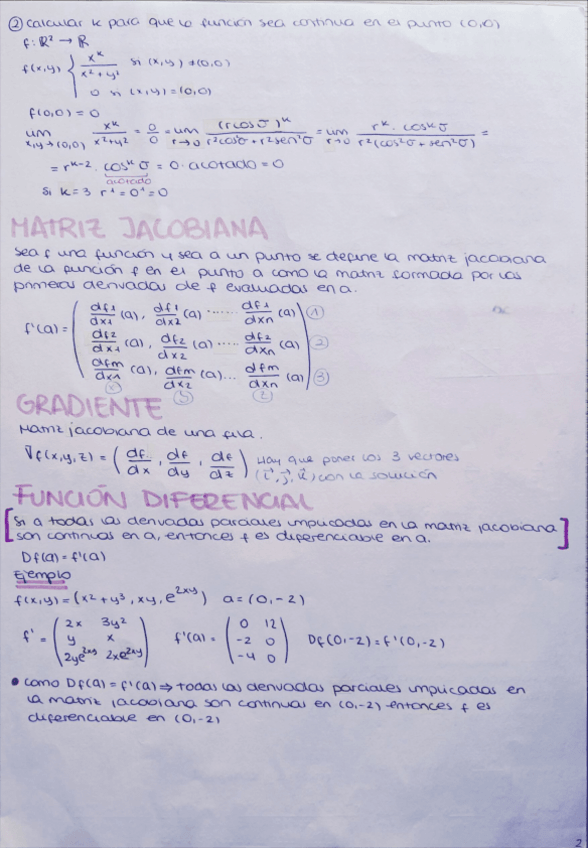 ② Calcular k para que la función sea continua en el punto (0,0)
f: ℝ² → ℝ
f(x,y) { x^k / (x²+y²) si (x,y) ≠ (0,0)
0 si (x,y) = (0,0)
f(0,0) = 0
lim x,y→(0,0) x^k / (x²+y²) = 0/0 = lim r→0 (r cos σ)^k / (r² cos²σ + r² sen²σ) = lim r→0 r^k · cos^k σ / r²(cos²σ + sen²σ) =
= r^(k-2) · cos^k σ = 0 · acotado = 0
acotado
Si k=3 r¹ = 0¹ = 0
MATRIZ JACOBIANA
Sea f una función y sea a un punto se define la matriz jacobiana
de la función f en el punto a como la matriz formada por las
primeras derivadas de f evaluadas en a.
f'(a) = ( df1/dx1 (a), df1/dx2 (a) ...... df1/dxn (a) ) ①
df2/dx1 (a), df2/dx2 (a) ..... df2/dxn (a) ②
dfm/dx1 (a), dfm/dx2 (a)... dfm/dxn (a) ③
GRADIENTE
Matriz jacobiana de una fila.
∇f(x,y,z) = ( df/dx , df/dy , df/dz ) Hay que poner los 3 vectores
(i⃗, j⃗, k⃗) con la solución
FUNCIÓN DIFERENCIAL
[Si a todas las derivadas parciales implicadas en la matriz jacobiana
son continuas en a, entonces f es diferenciable en a.]
Df(a) = f'(a)
Ejemplo
f(x,y) = (x²+y³, xy, e^(2xy)) a = (0,-2)
f' = ( 2x 3y² ; y x ; 2ye^(2xy) 2xe^(2xy) ) f'(a) = ( 0 12 ; -2 0 ; -4 0 ) Df(0,-2) = f'(0,-2)
• Como Df(a) = f'(a) ⇒ todas las derivadas parciales implicadas en
la matriz jacobiana son continuas en (0,-2) entonces f es
diferenciable en (0,-2)
2